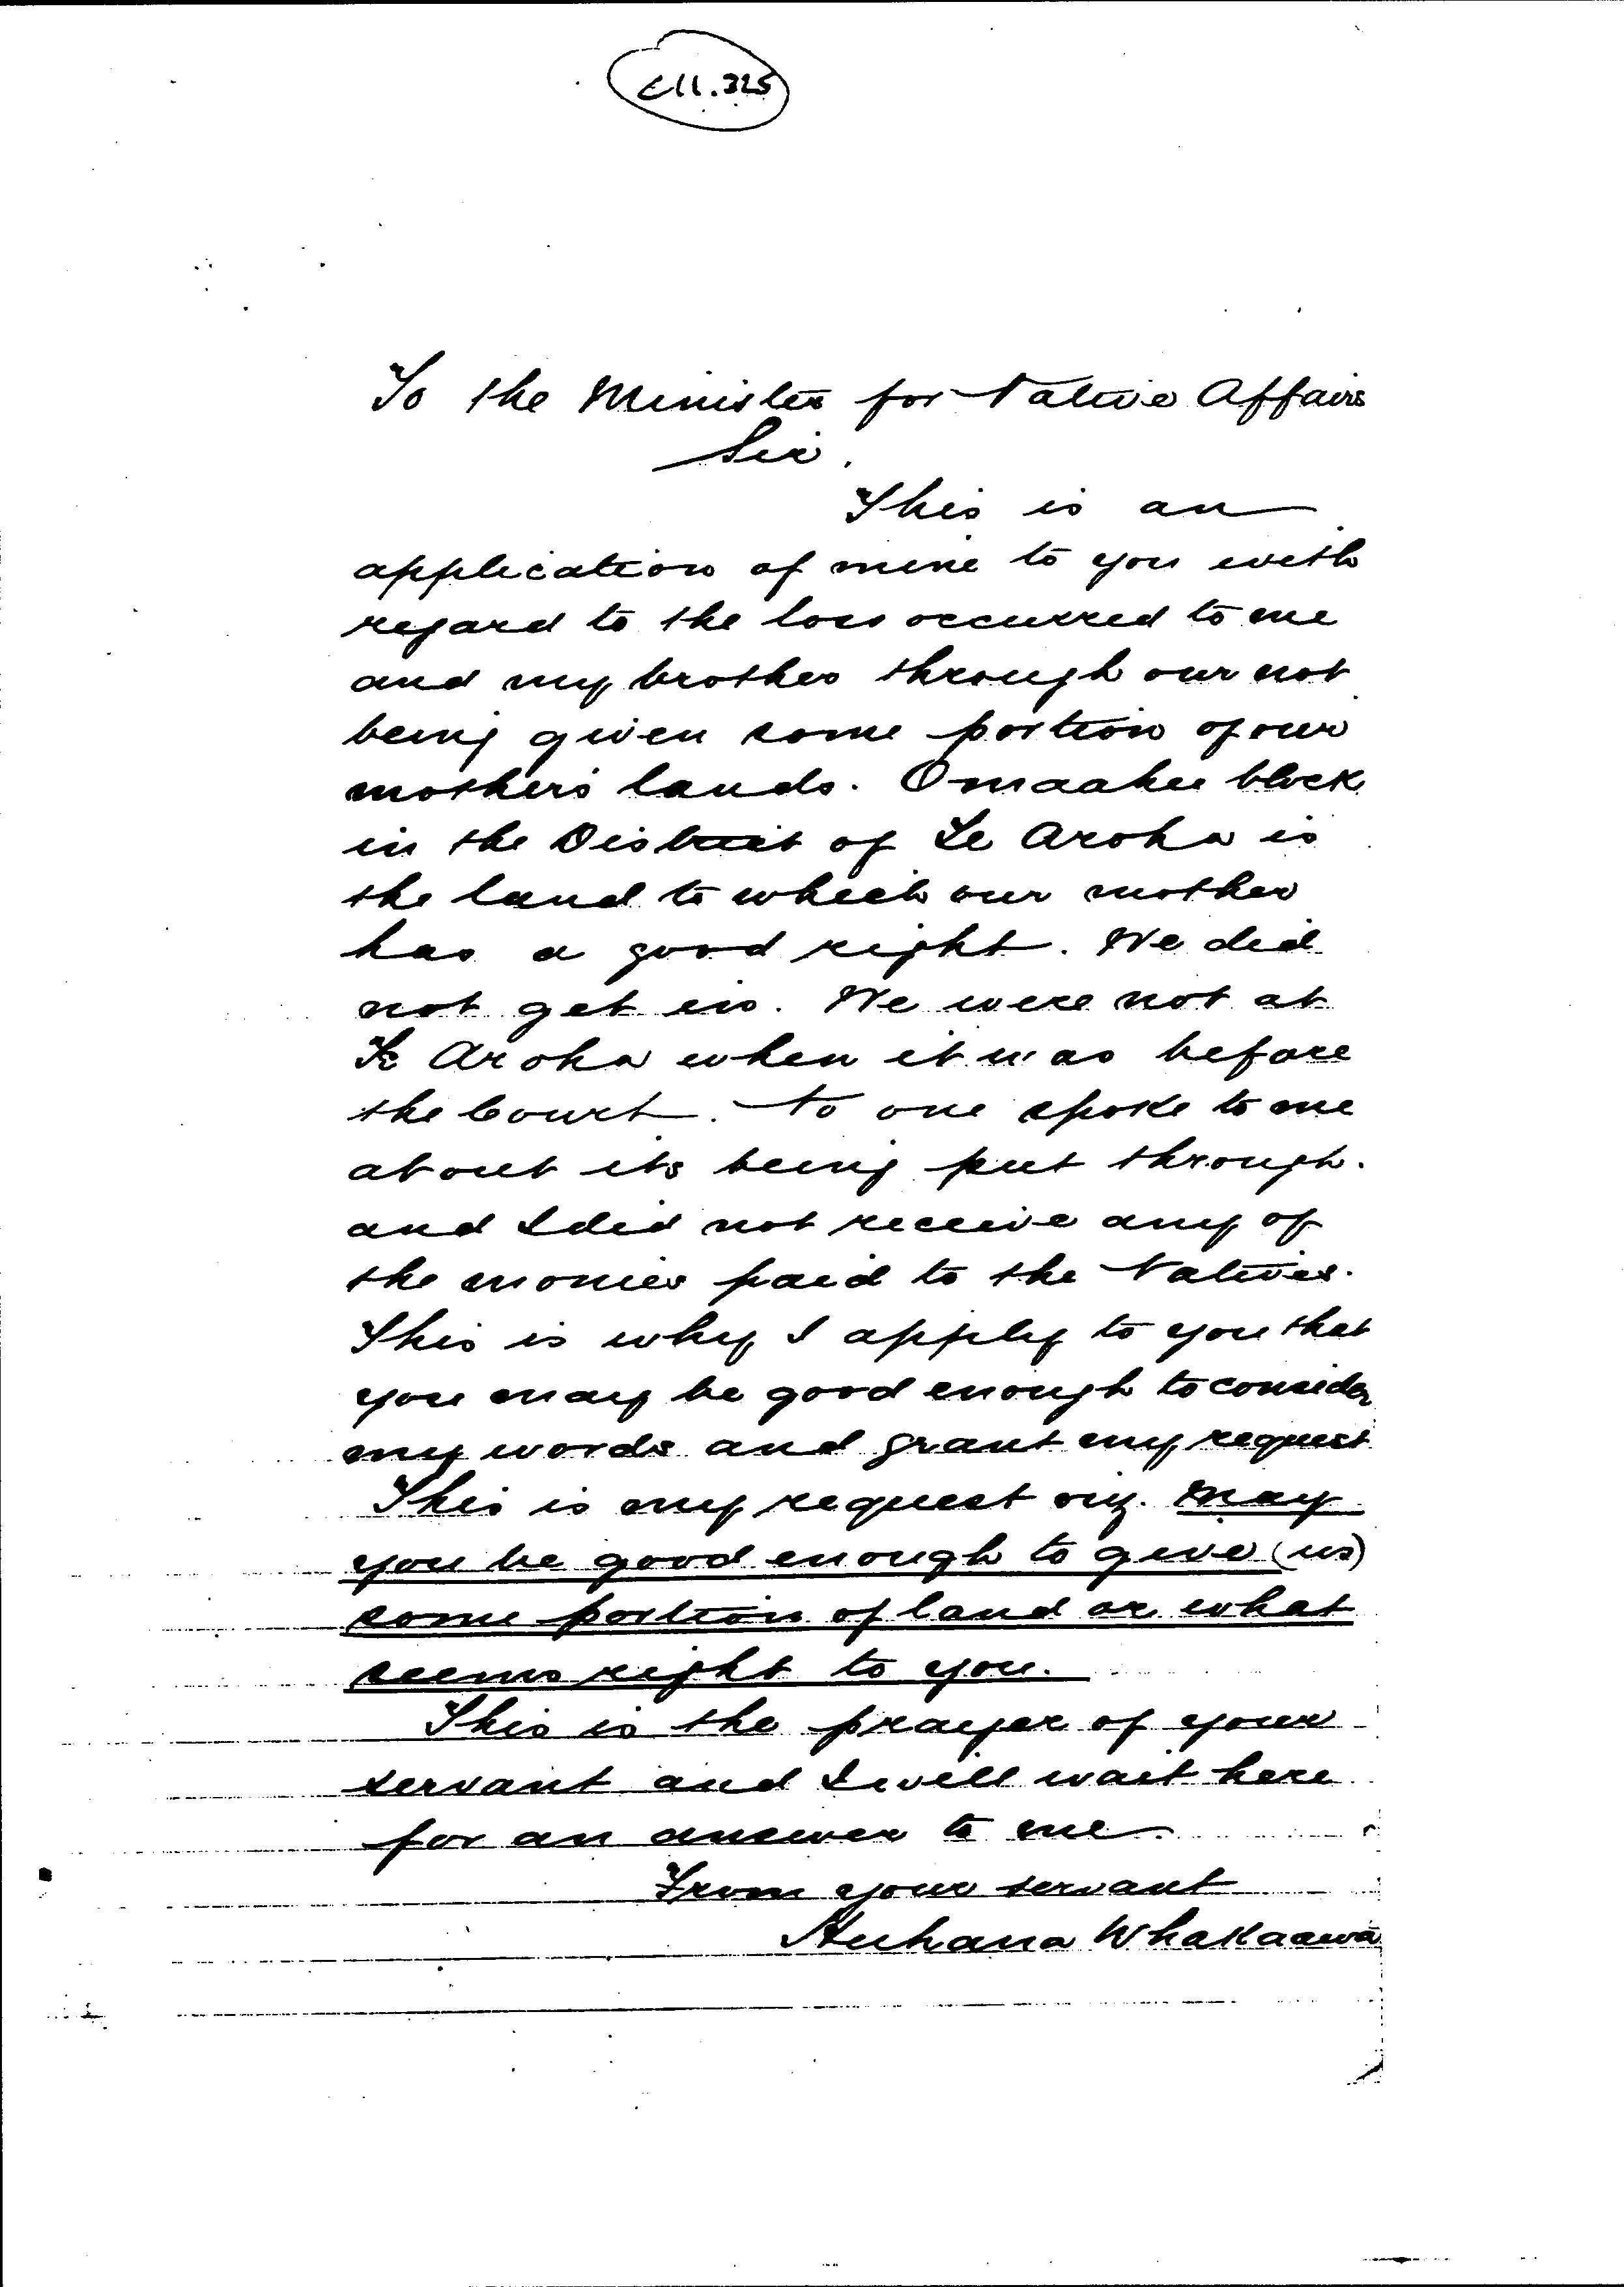 C11.325
To the Minister for Native Affairs
Sir.
This is an
application of mine to you with
regard to the loss occurred to me
and my brother through our not
being given some portion of our
mother's lands. Omaahu block
in the District of Te Aroha is
the land to which our mother
has a good right. We did
not get in. We were not at
Te Aroha when it was before
the Court. No one spoke to me
about its being put through.
and I did not receive any of
the monies paid to the Natives.
This is why I apply to you that
you may be good enough to consider
my words and grant my request
This is my request viz. May
you be good enough to give (us)
some portion of land or what
seems right to you.
This is the prayer of your
servant and I will wait here
for an answer to me
From your servant
Whakaawa